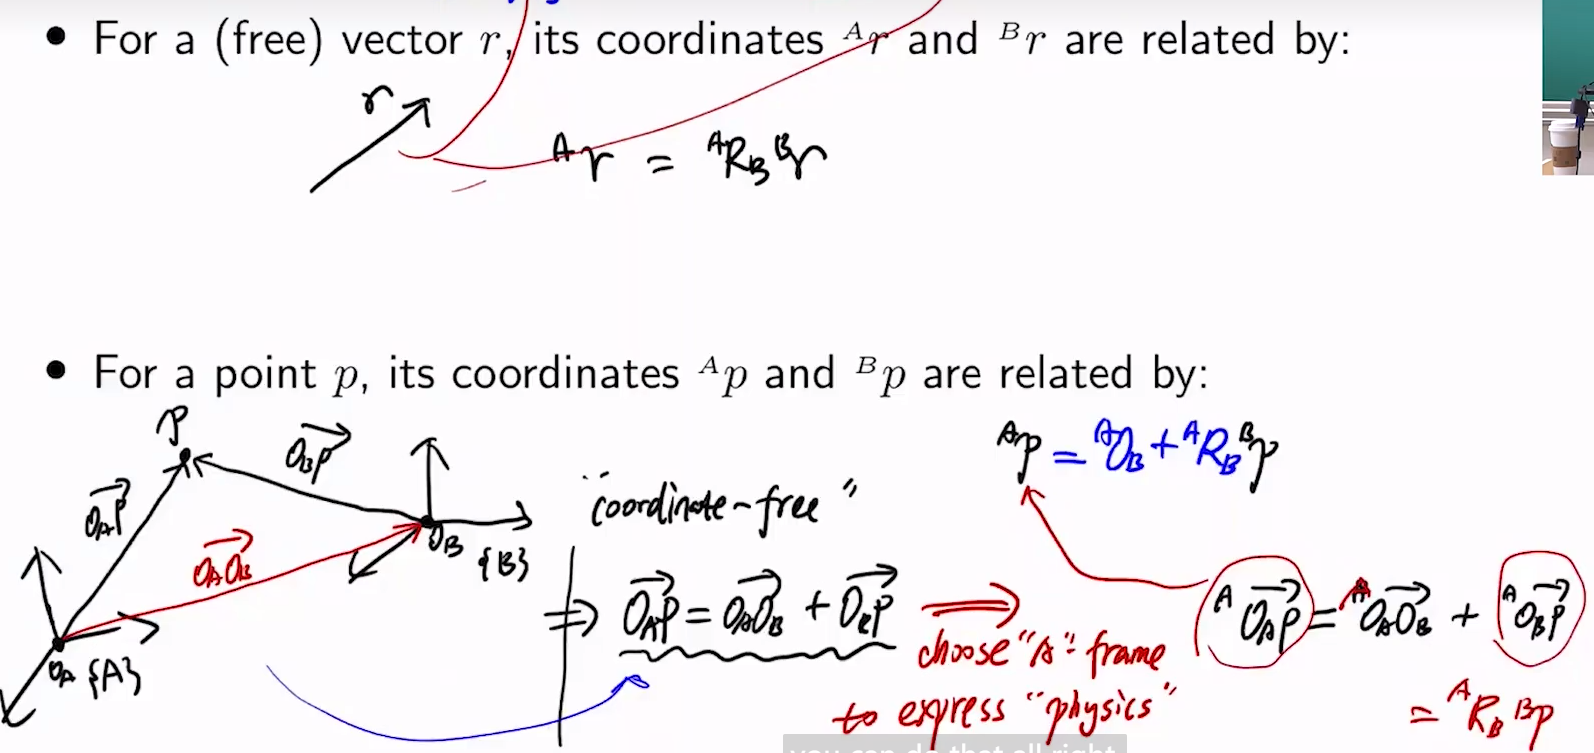 • For a (free) vector r, its coordinates ᴬr and ᴮr are related by:
r
ᴬr = ᴬR_B ᴮr
• For a point p, its coordinates ᴬp and ᴮp are related by:
P
O_BP
O_AP
O_AO_B
O_B
{B}
O_A {A}
"coordinate-free"
ᴬp = ᴬO_B + ᴬR_B ᴮp
⇒ O_AP = O_AO_B + O_BP ⇒ ᴬO_AP = ᴬO_AO_B + ᴬO_BP
choose "A" frame
to express "physics"
= ᴬR_B ᴮp
you can do that all right